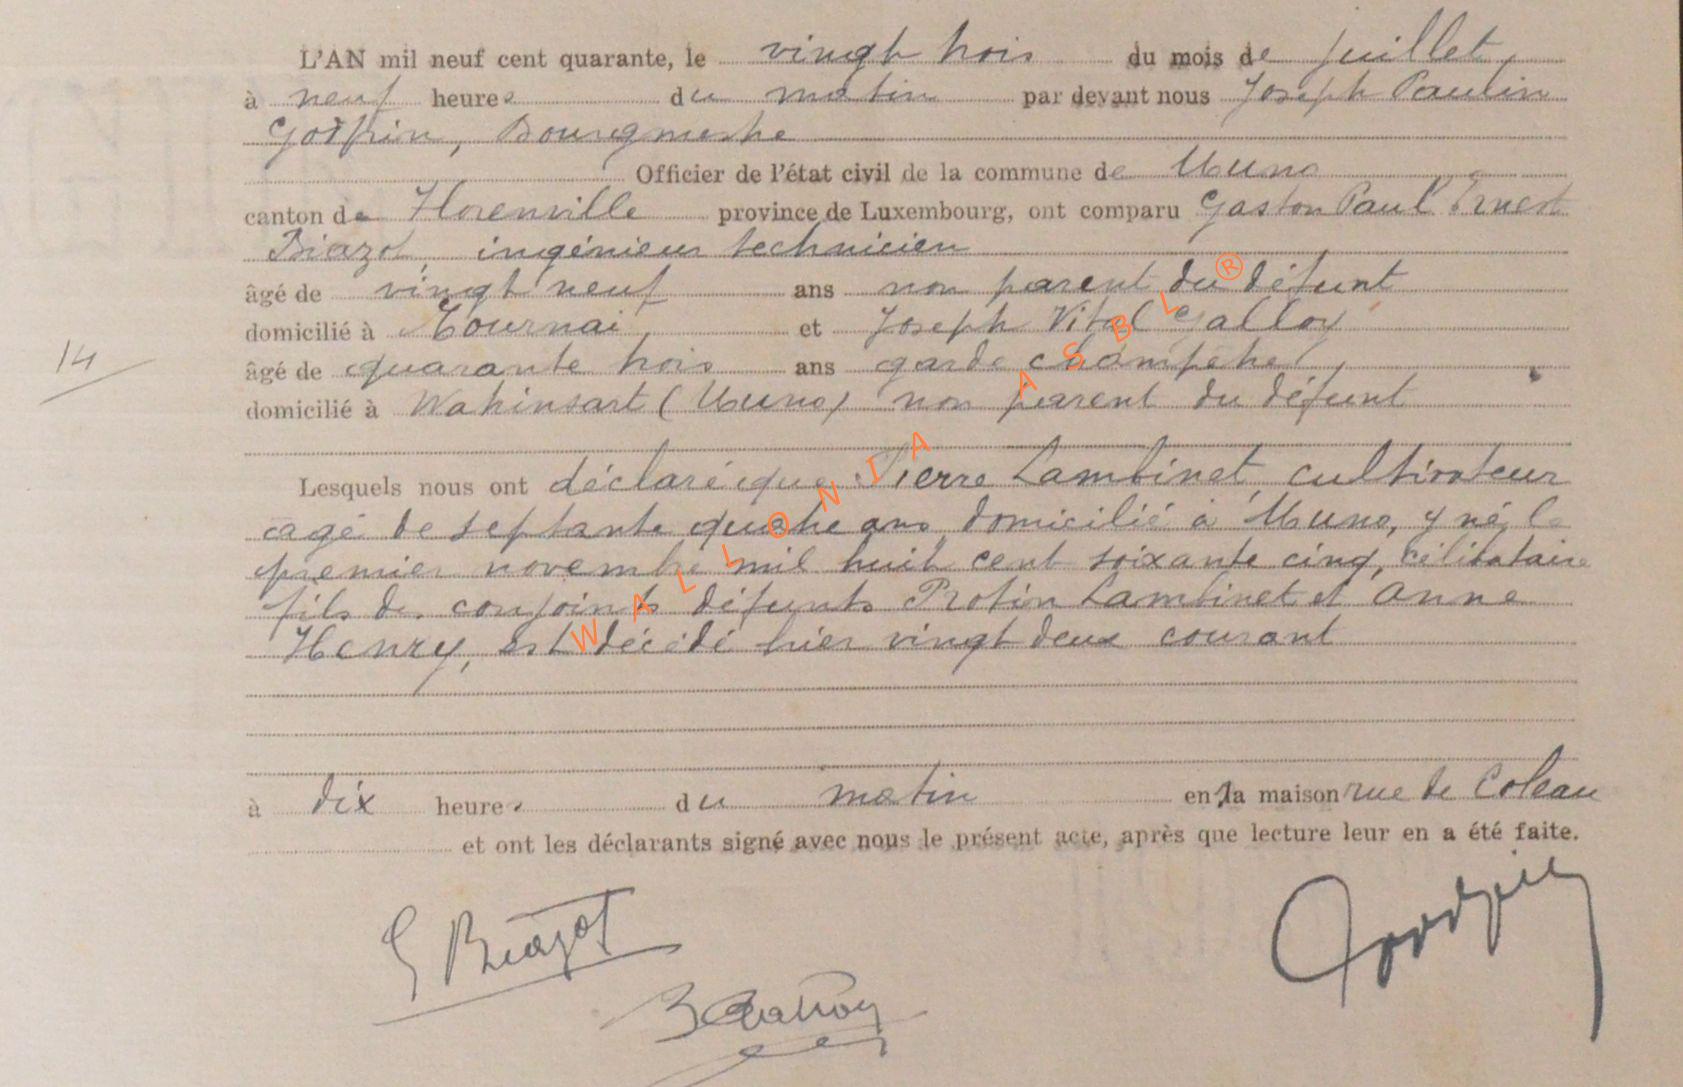 L'AN mil neuf cent quarante, le vingt trois du mois de juillet
à neuf heures du matin par devant nous Joseph Paulin
Bourgmestre
Officier de l'état civil de la commune de Muno
canton de Florenville province de Luxembourg, ont comparu Gaston Paul Ernest
Biazot, ingénieur technicien
âgé de vingt neuf ans non parent du défunt
domicilié à Tournai, et Joseph Vital Galloy
14
âgé de quarante trois ans garde champêtre,
domicilié à Watrinsart (Muno) non parent du défunt
Lesquels nous ont déclaré que Pierre Lambinet, cultivateur
agé de septante quatre ans domicilié à Muno, y né le
premier novembre mil huit cent soixante cinq, célibataire
fils des conjoints défunts Protin Lambinet et Anne
Henry, est décédé hier vingt deux courant
à dix heures du matin en la maison rue de Coleau
et ont les déclarants signé avec nous le présent acte, après que lecture leur en a été faite.
G Biazot
WALLONIA ASBL ®